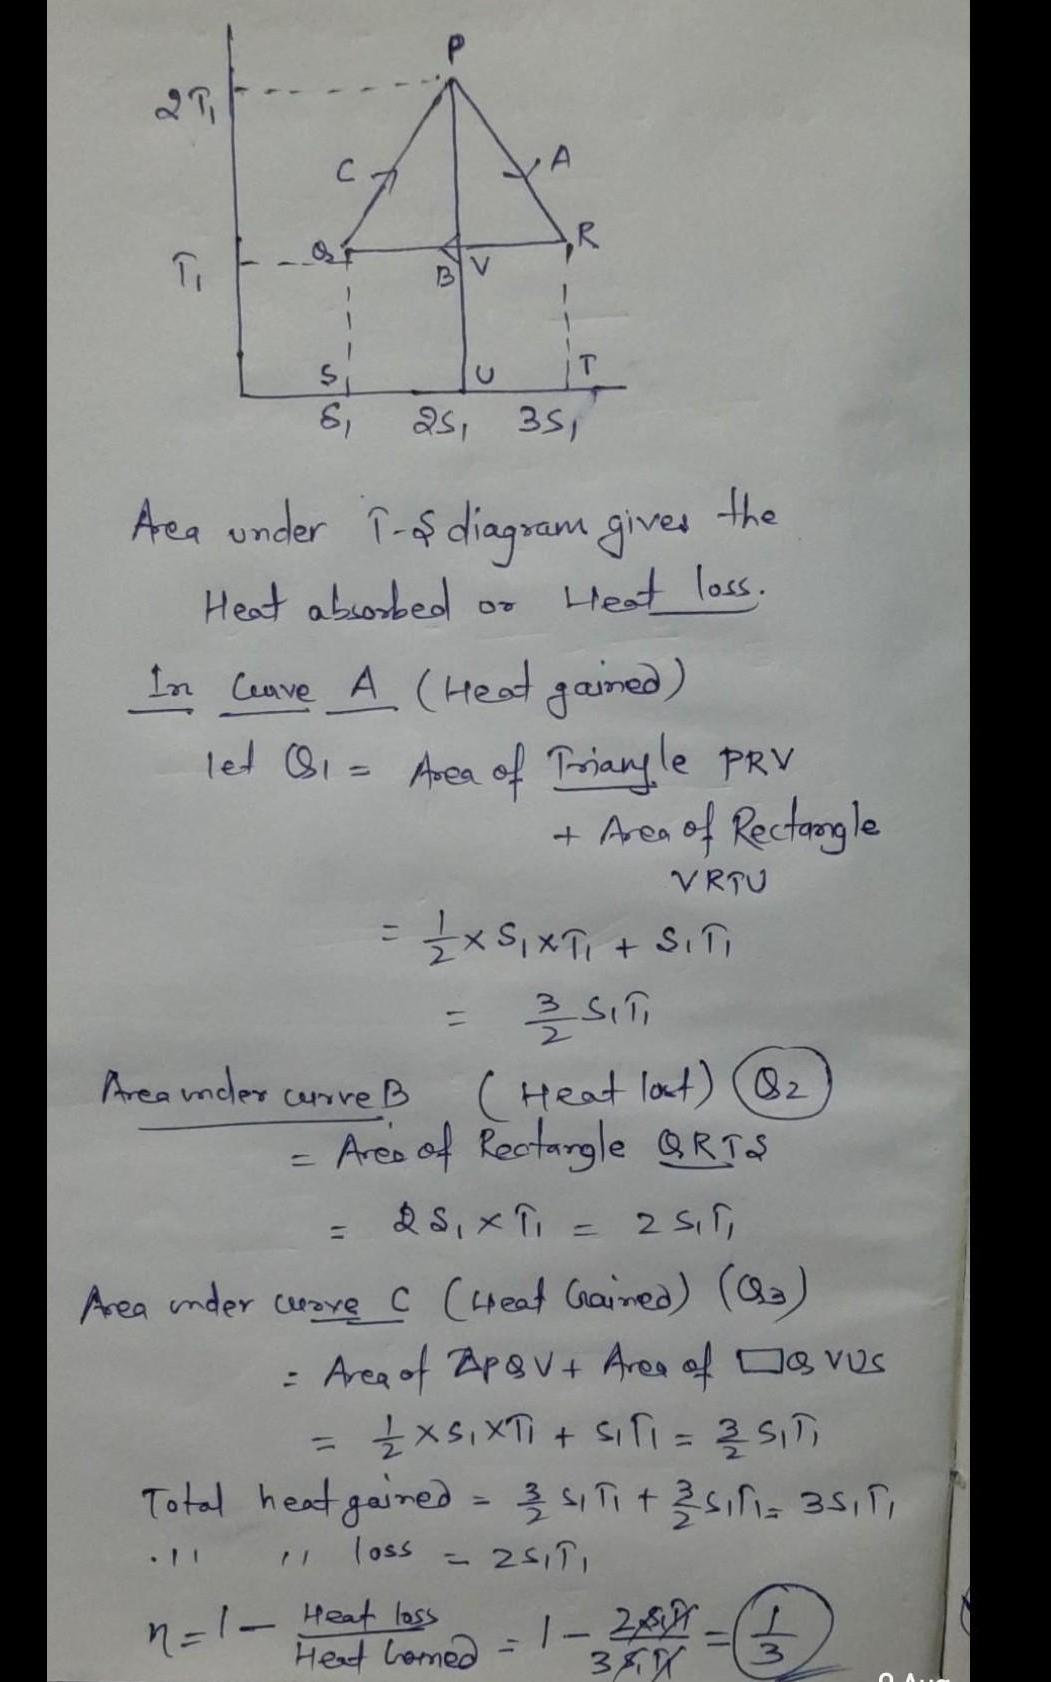 P
2T₁
C
A
Q
R
T₁
B V
S U T
S₁ 2S₁ 3S₁
Area under T-S diagram gives the
Heat absorbed or Heat loss.
In Curve A (Heat gained)
let Q₁ = Area of Triangle PRV
+ Area of Rectangle
VRTU
= 1/2 × S₁ × T₁ + S₁T₁
= 3/2 S₁T₁
Area under curve B (Heat lost) Q₂
= Area of Rectangle QRTS
= 2S₁ × T₁ = 2S₁T₁
Area under curve C (Heat Gained) (Q₃)
= Area of △PQV + Area of ▭QVUS
= 1/2 × S₁ × T₁ + S₁T₁ = 3/2 S₁T₁
Total heat gained = 3/2 S₁T₁ + 3/2 S₁T₁ = 3S₁T₁
.11 11 loss = 2S₁T₁
η = 1 - Heat loss/Heat Gained = 1 - 2S₁T₁/3S₁T₁ = 1/3